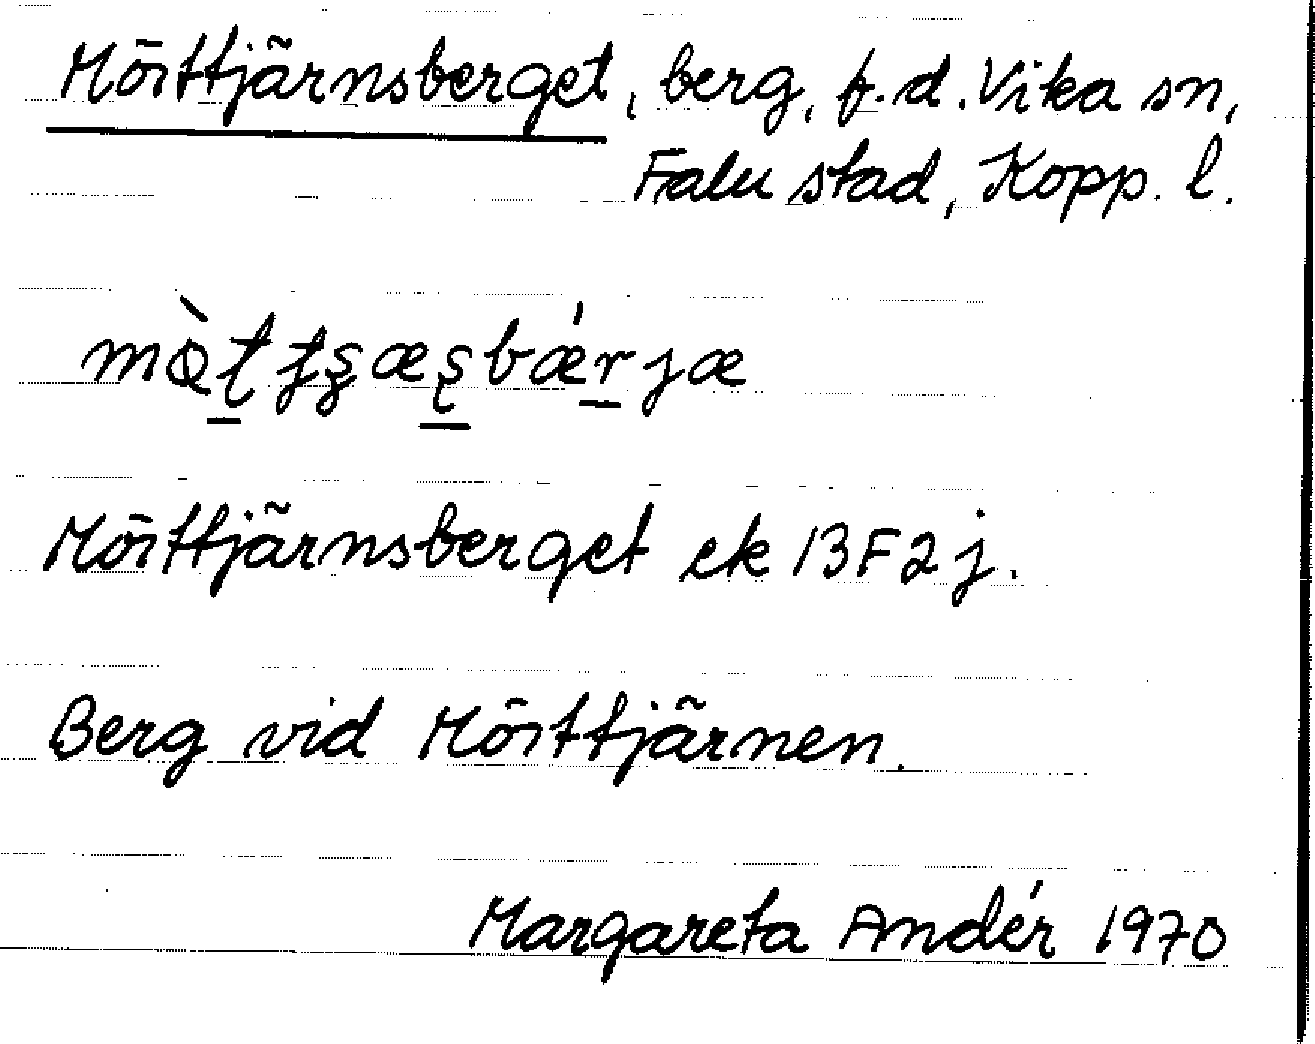 Mörttjärnsberget, berg, f.d. Vika sn,
Falu stad, Kopp. l.
Mörttjärnsberget ek 13F2j.
Berg vid Mörttjärnen.
Margareta Andér 1970